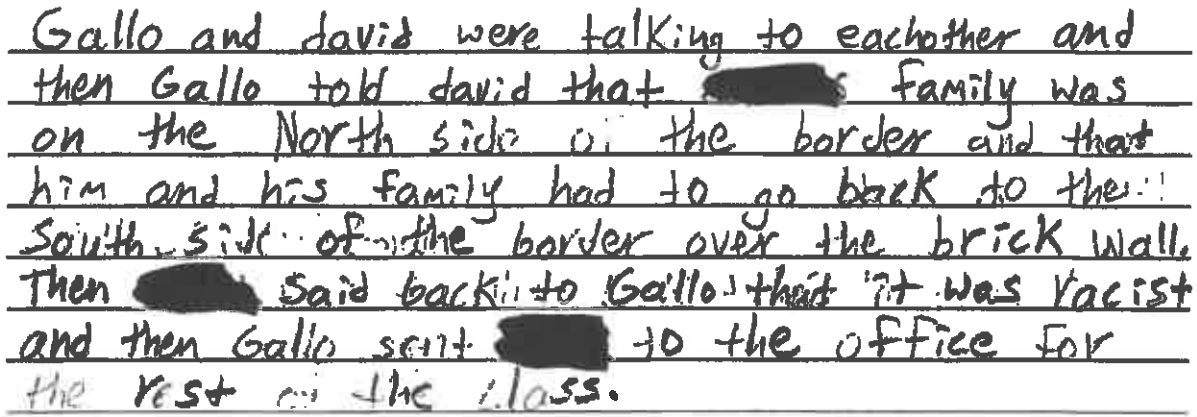 Gallo and david were talking to eachother and
then Gallo told david that family was
on the North side of the border and that
him and his family had to go back to the
South side of the border over the brick wall.
Then said back to Gallo that it was racist
and then Gallo sent to the office for
the rest of the class.